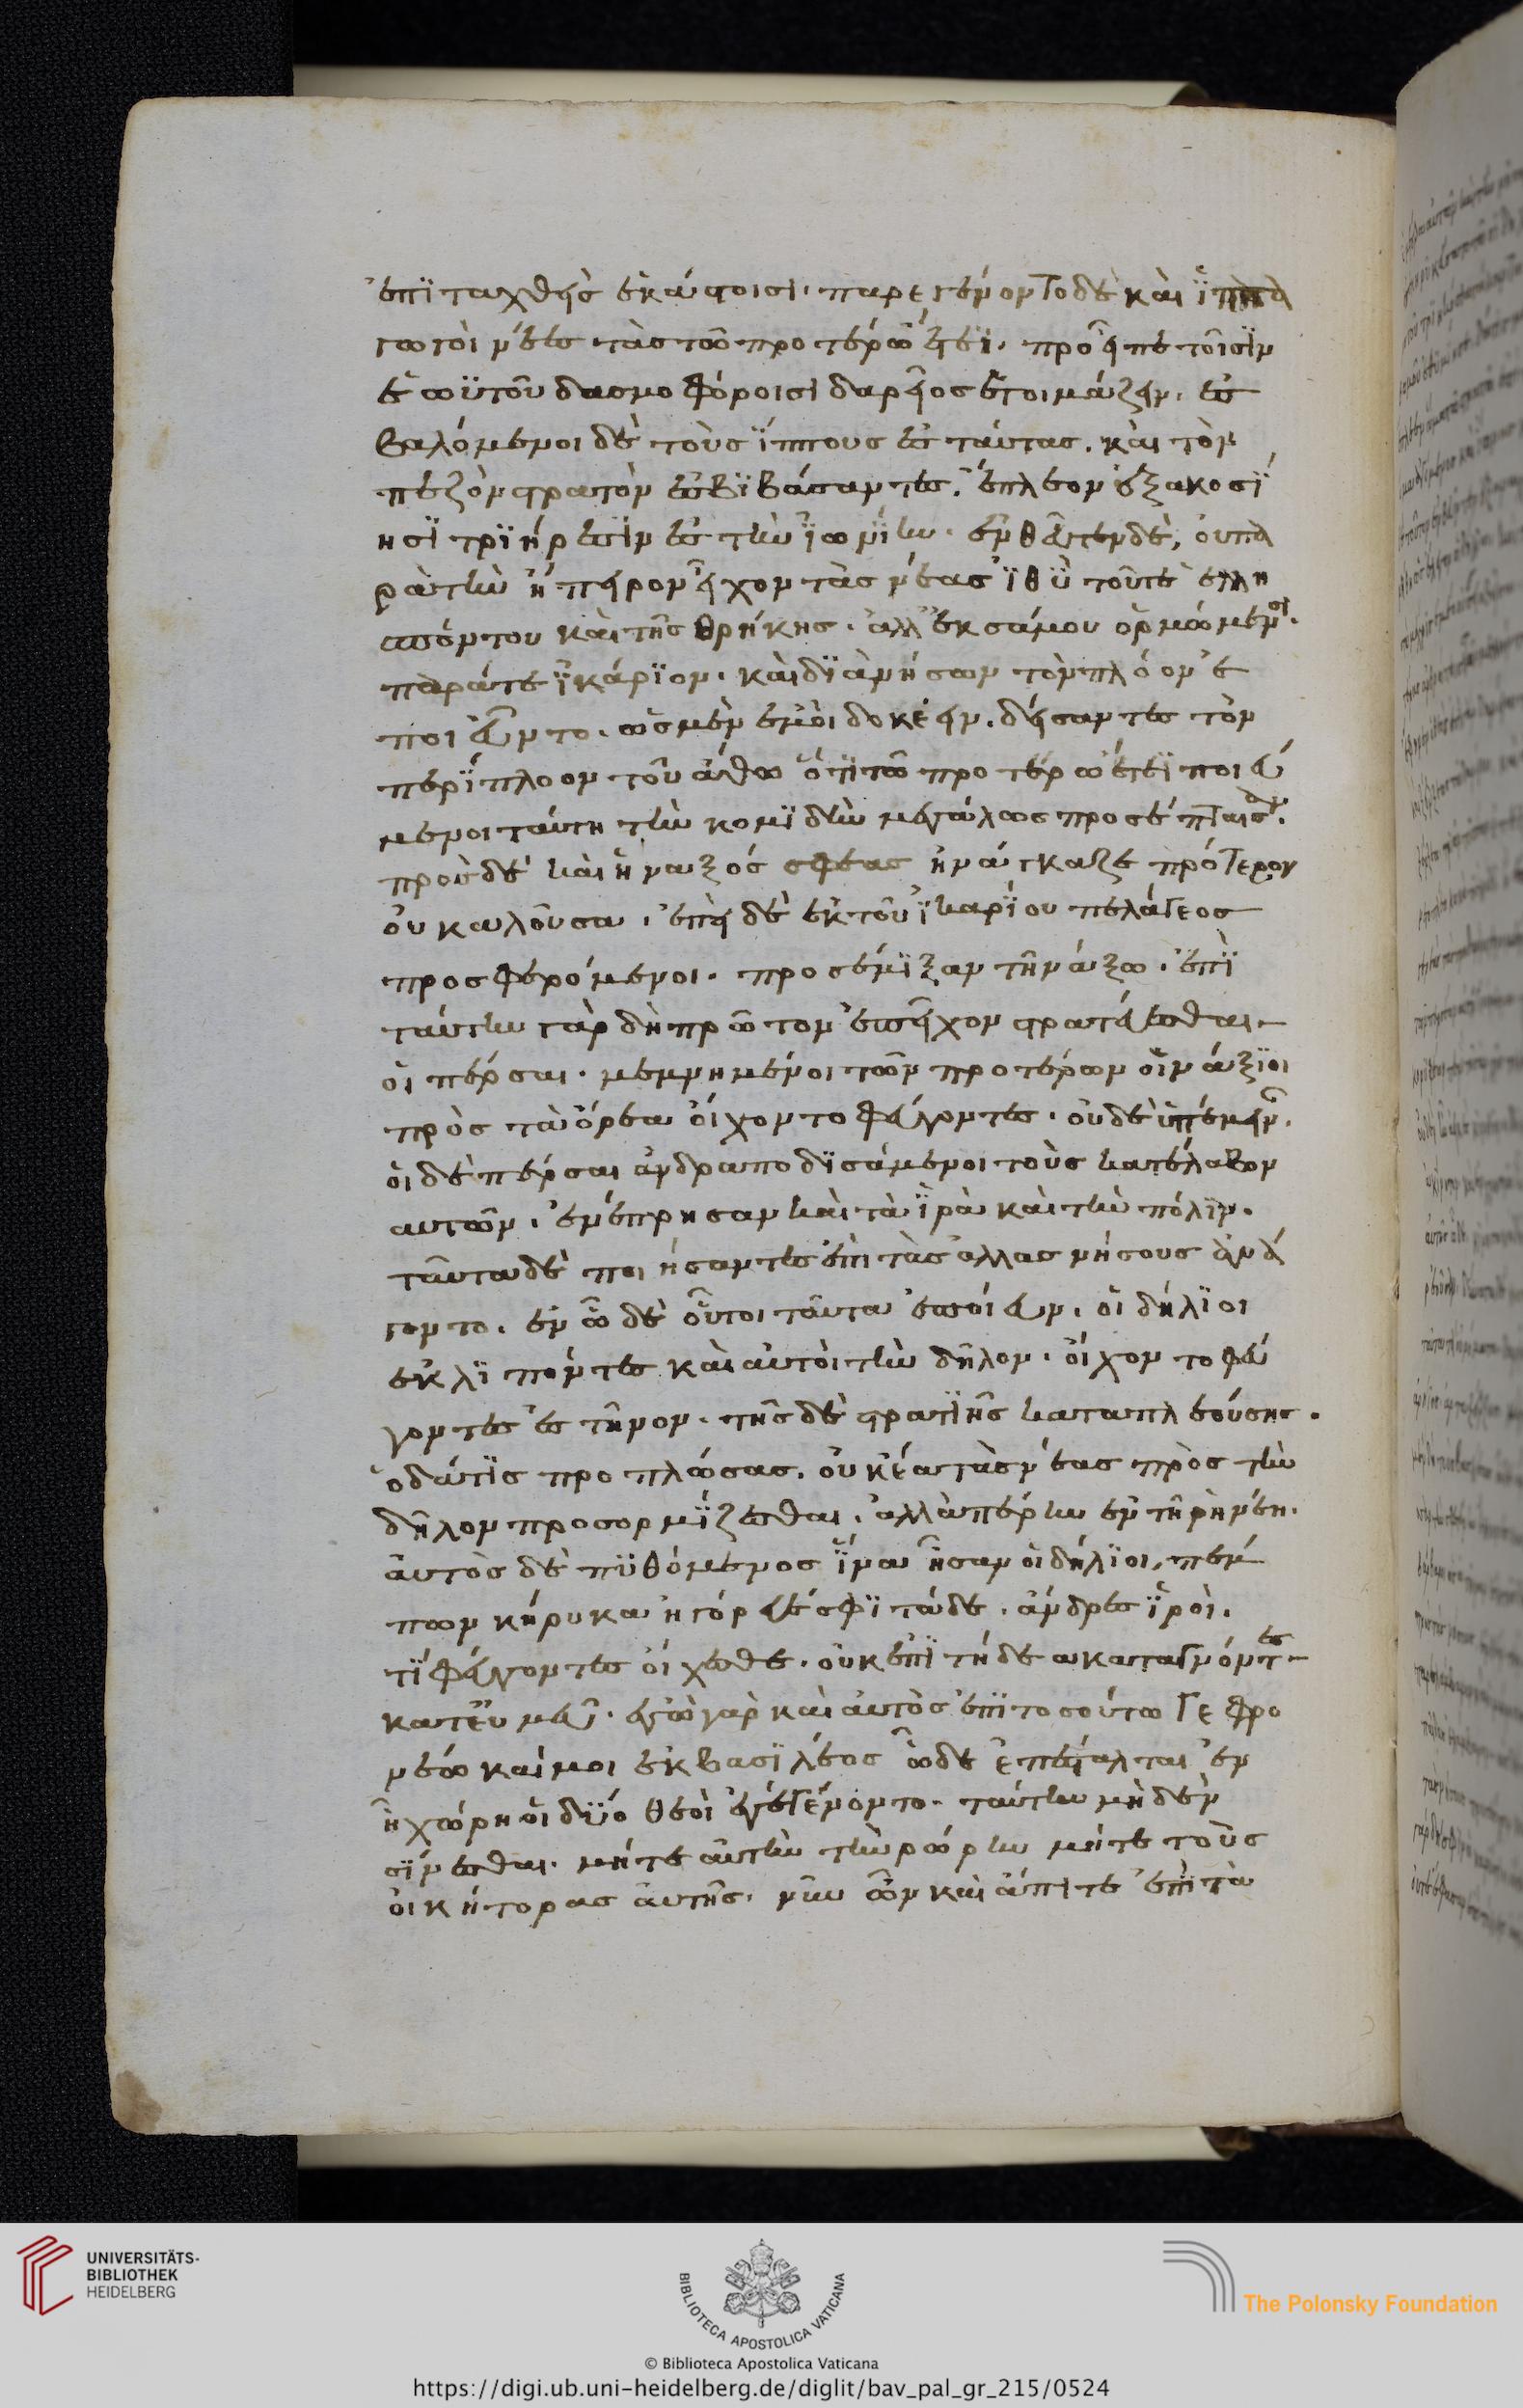 ἐπϊταχθεὶς ἑκάστοισι. παρεγένοντο δὲ καὶ ἱππα
γωγοὶ νέες τὰς τῶ προτέρω ἔτεϊ. προεῖπε τοῖσϊν
ἑωϋτοῦ δασμοφόροισι δαρεῖος ἑτοιμάζειν. ἐσ
βαλόμενοι δὲ τοὺς ἵππους ἐς ταύτας. καὶ τὸν
πεζὸν στρατὸν ἐσβϊβάσαντες. ἔπλεον ἑξακοσί
ησϊ τρϊήρεσϊν ἐς τὴν ἰωνΐην. ἐνθεῦτεν δὲ, οὐ πα
ρὰ τὴν ἤπειρον εἶχον τὰς νέας ἰθὺ τοῦτε ἑλλη
σπόντου καὶ τῆς θρήκης. ἀλλ' ἐκ σάμου ὁρμώμενοι.
παράτε ἰκάρϊον. καὶ δϊὰ νήσων τὸν πλόον ἐ
ποιεῦντο. ὡς μὲν ἐμοὶ δοκέειν. δείσαντες τὸν
περίπλοον τοῦ ἄθω ὅτι τῶ προτέρω ἔτεϊ ποιεύ
μενοι ταύτη τὴν κομϊδὴν μεγάλως προσέπταισαν.
πρὸς δὲ καὶ ἡ ναξός σφεας ἠνάγκαζε πρότερον
οὐκ ἁλοῦσα. ἐπεὶ δὲ ἐκ τοῦ ἰκαρΐου πελάγεος
προσφερόμενοι. προσέμϊξαν τῆ νάξω. ἐπὶ
ταύτην γὰρ δὴ πρῶτον ἐπεῖχον στρατεύεσθαι
οἱ πέρσαι. μεμνημένοι τῶν προτέρων οἱ νάξϊοι
πρὸς τὰ ὄρεα οἴχοντο φεύγοντες. οὐδὲ ὑπέμειναν.
οἱ δὲ πέρσαι ἀνδραποδϊσάμενοι τοὺς κατέλαβον
αυτῶν. ἐνέπρησαν καὶ τὰ ἱρὰ καὶ τὴν πόλϊν.
ταῦτα δὲ ποιήσαντες ἐπὶ τὰς ἄλλας νήσους ἀνά
γοντο. ἐν ὧ δὲ οὗτοι ταῦτα ἐποίευν. οἱ δήλϊοι
ἐκλϊπόντες καὶ αὐτοὶ τὴν δῆλον. οἴχοντο φεύ
γοντες ἐς τῆνον. τῆς δὲ στρατϊῆς καταπλεούσης.
ὁ δάτϊς προπλώσας. οὐκ ἔα τὰς νέας πρὸς τὴν
δῆλον προσορμΐζεσθαι. ἀλλὰ πέρην ἐν τῆ ρηνέη.
αὐτὸς δὲ πϋθόμενος ἵνα ἦσαν οἱ δήλϊοι, πέμ
πων κήρυκα ἠγόρευέ σφϊ τάδε. ἄνδρες ἱροὶ.
τί φεύγοντες οἴχεσθε. οὐκ ἐπϊτήδεα καταγνόντες
κατ' ἐμεῦ. ἐγὼ γὰρ καὶ αὐτὸς ἐπὶ τοσούτω γε φρο
νέω καί μοι ἐκ βασϊλέος ὧδε ἐπέσταλται ἐν
ἧ χώρη οἱ δύο θεοὶ ἐγένοντο. ταύτην μηδὲν
σϊνέεσθαι. μήτε αὐτὴν τὴν χώρην μήτε τοὺς
οἰκήτορας αὐτῆς. νῦν ὦν καὶ ἄπιτε ἐπὶ τὰ
UNIVERSITÄTS-
BIBLIOTHEK
HEIDELBERG
BIBLIOTECA APOSTOLICA VATICANA
The Polonsky Foundation
© Biblioteca Apostolica Vaticana
https://digi.ub.uni-heidelberg.de/diglit/bav_pal_gr_215/0524